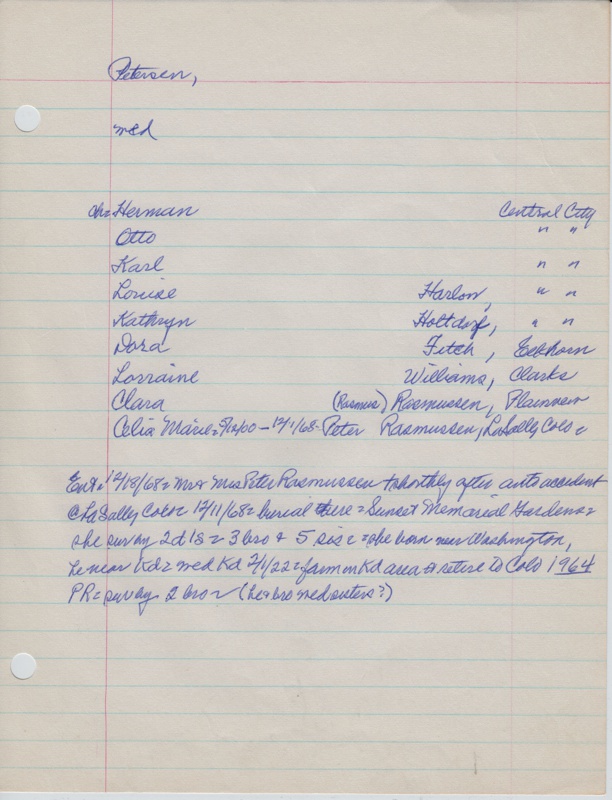 Petersen,
med
ch= Herman Central City
Otto " "
Karl " "
Louise Harlow, " "
Kathryn Holtdorf, " "
Dora Fitch, Elkhorn
Lorraine Williams, Clarks
Clara (Rasmus) Rasmussen, Plainview
Celia Marie= - 12/11/68- Peter Rasmussen, LaSally Colo=
12/18/68= Mr & Mrs Peter Rasmussen shortly after auto accident
@ LaSally Colo= 12/11/68= burial there= Sunset Memorial Gardens=
she surv by 2d 1s = 3 bro & 5 sis = she born near Washington,
he near Kd= med Kd 2/1/22= farm in Kd area & retire to Colo 1964
PR= surv by 2 bro= (he & bro med sisters?)